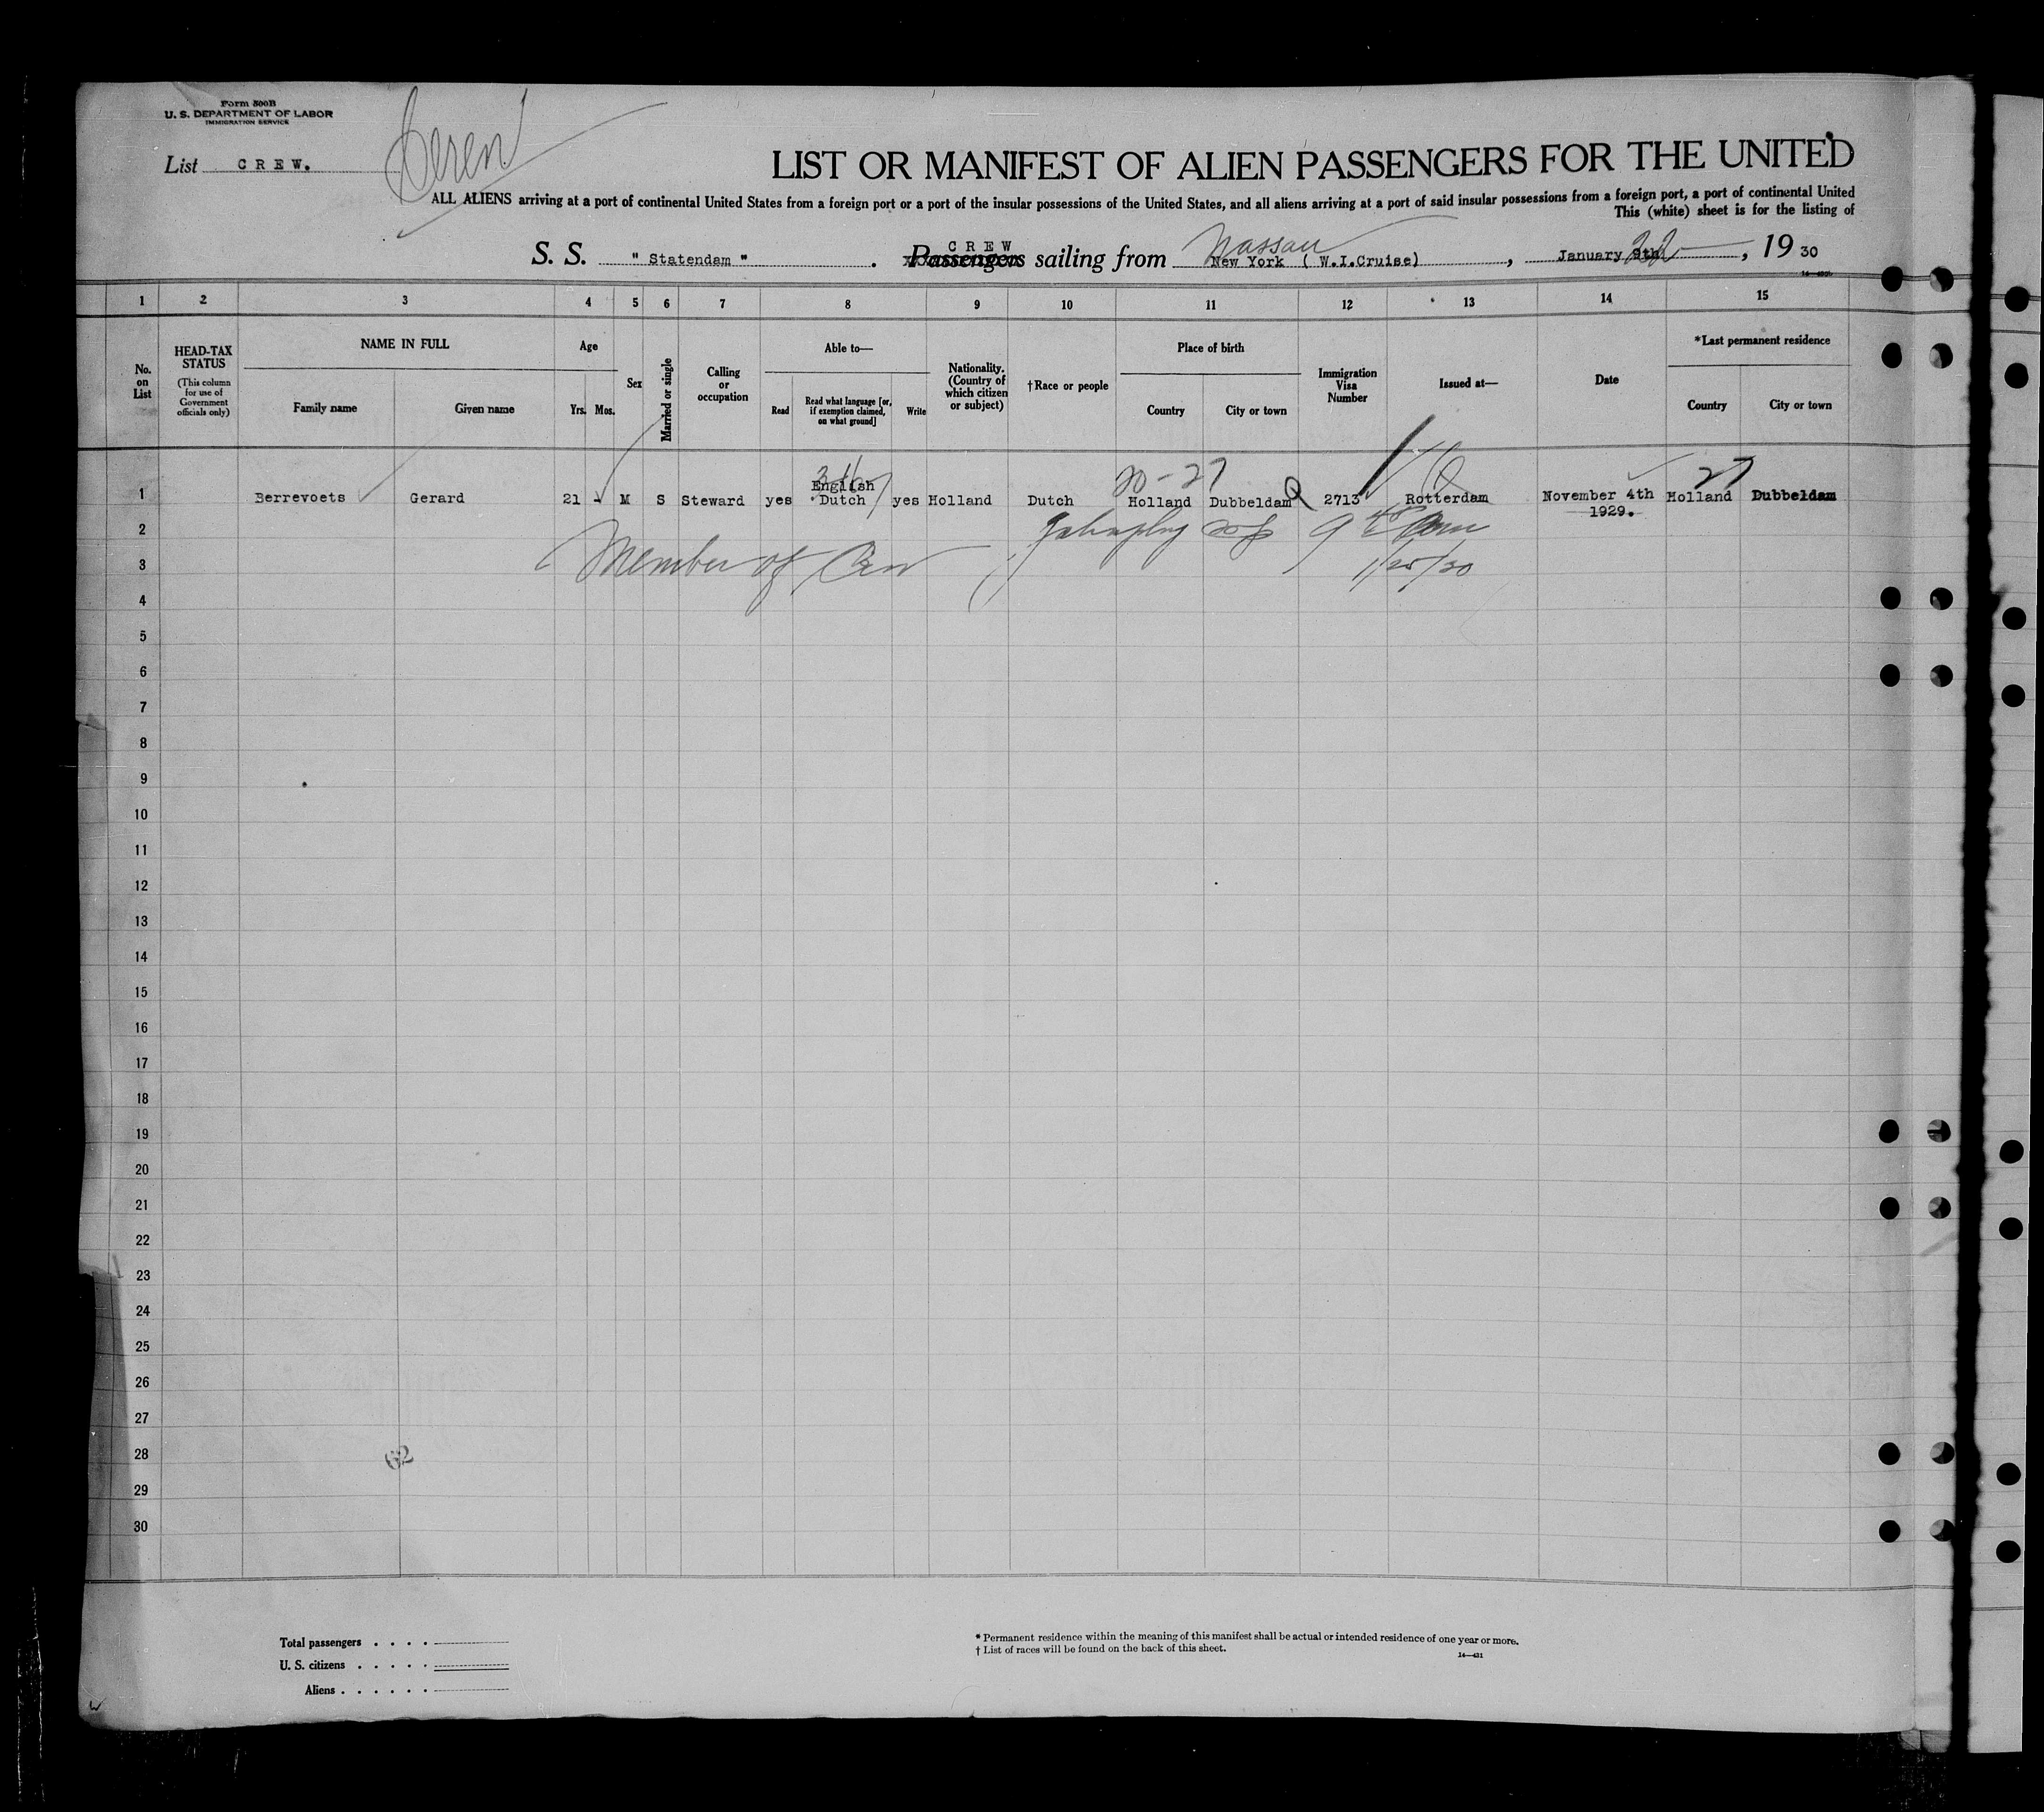 Form 500B
U. S. DEPARTMENT OF LABOR
IMMIGRATION SERVICE
List C R E W.
LIST OR MANIFEST OF ALIEN PASSENGERS FOR THE UNITED
ALL ALIENS arriving at a port of continental United States from a foreign port or a port of the insular possessions of the United States, and all aliens arriving at a port of said insular possessions from a foreign port, a port of continental United
This (white) sheet is for the listing of
C R E W Nassau
S. S. " Statendam " . Passengers sailing from New York ( W.I.Cruise) , January 9th 22 , 19 30
1 2 3 4 5 6 7 8 9 10 11 12 13 14 15
No. on List
HEAD-TAX STATUS
(This column for use of Government officials only)
NAME IN FULL
Family name Given name
Age
Yrs. Mos.
Sex
Married or single
Calling or occupation
Able to—
Read
Read what language [or, if exemption claimed, on what ground]
Write
Nationality. (Country of which citizen or subject)
†Race or people
Place of birth
Country City or town
Immigration Visa Number
Issued at—
Date
*Last permanent residence
Country City or town
20-27 27
English
1 Berrevoets Gerard 21 - M S Steward yes Dutch yes Holland Dutch Holland Dubbeldam 2713 Rotterdam November 4th Holland Dubbeldam
1929.
2
3 Member of Crew 1/25/30
4
5
6
7
8
9
10
11
12
13
14
15
16
17
18
19
20
21
22
23
24
25
26
27
28
62
29
30
Total passengers . . . .
U. S. citizens . . . . .
Aliens . . . . . .
* Permanent residence within the meaning of this manifest shall be actual or intended residence of one year or more.
† List of races will be found on the back of this sheet.
14—431